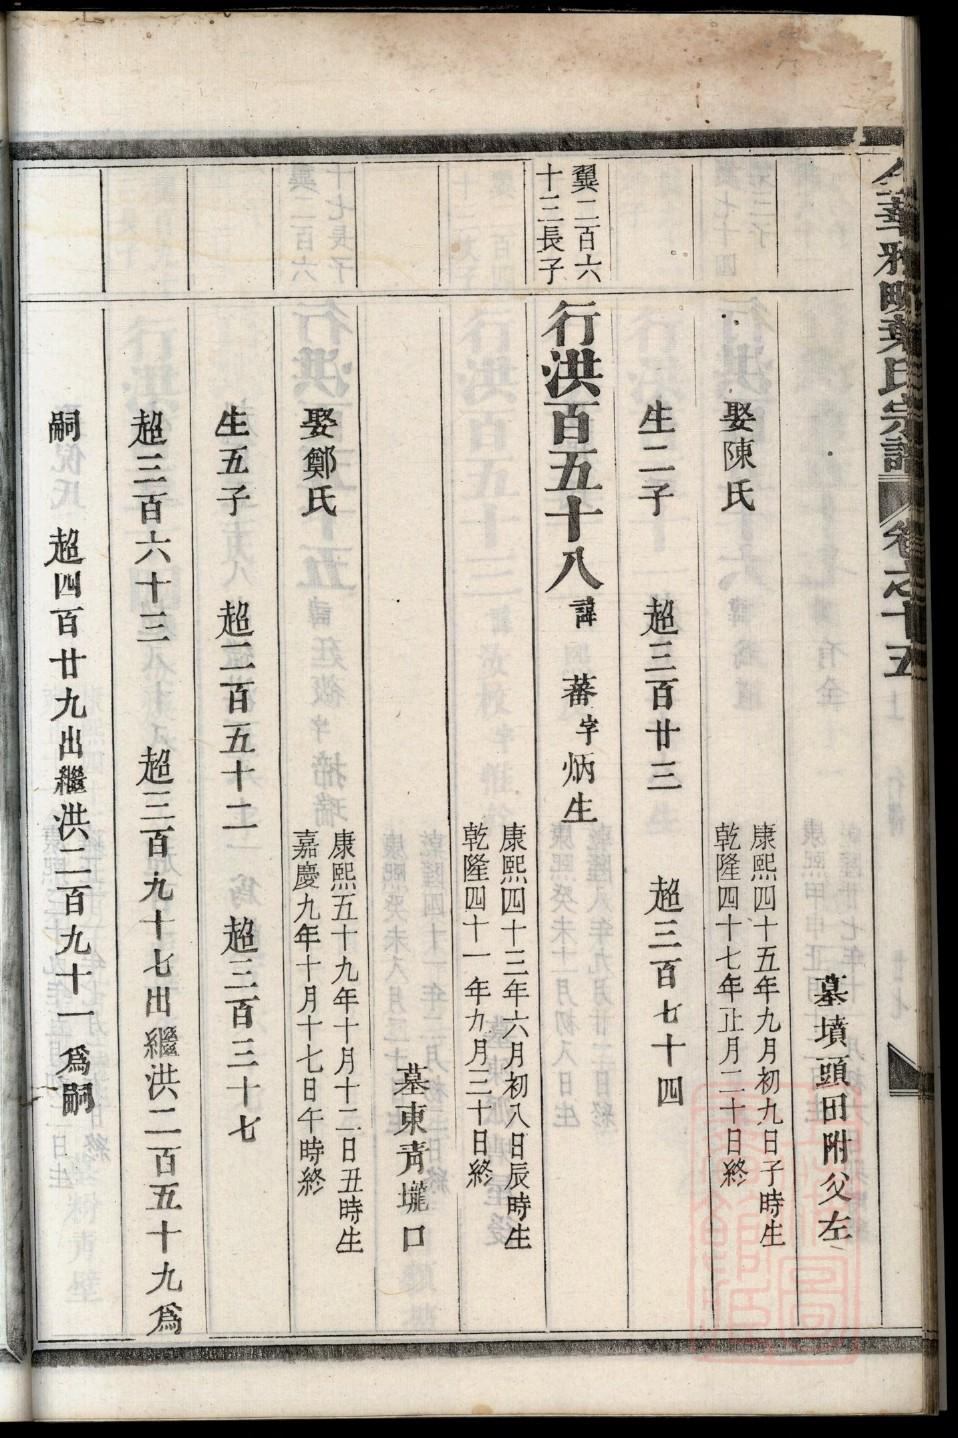 金華雅畈葉氏宗譜 卷之十五
墓墳頭田附父左
娶陳氏
康熙四十五年九月初九日子時生
乾隆四十七年正月二十日終
生二子 超三百廿三 超三百七十四
翼二百六
十三長子
行洪百五十八 諱蕃 字炳生
康熙四十三年六月初八日辰時生
乾隆四十一年九月三十日終
墓東青壠口
娶鄭氏
康熙五十九年十月十二日丑時生
嘉慶九年十月十七日午時終
生五子 超二百五十二 超三百三十七
超三百六十三 超三百九十七出繼洪二百五十九爲
嗣 超四百廿九出繼洪二百九十一爲嗣